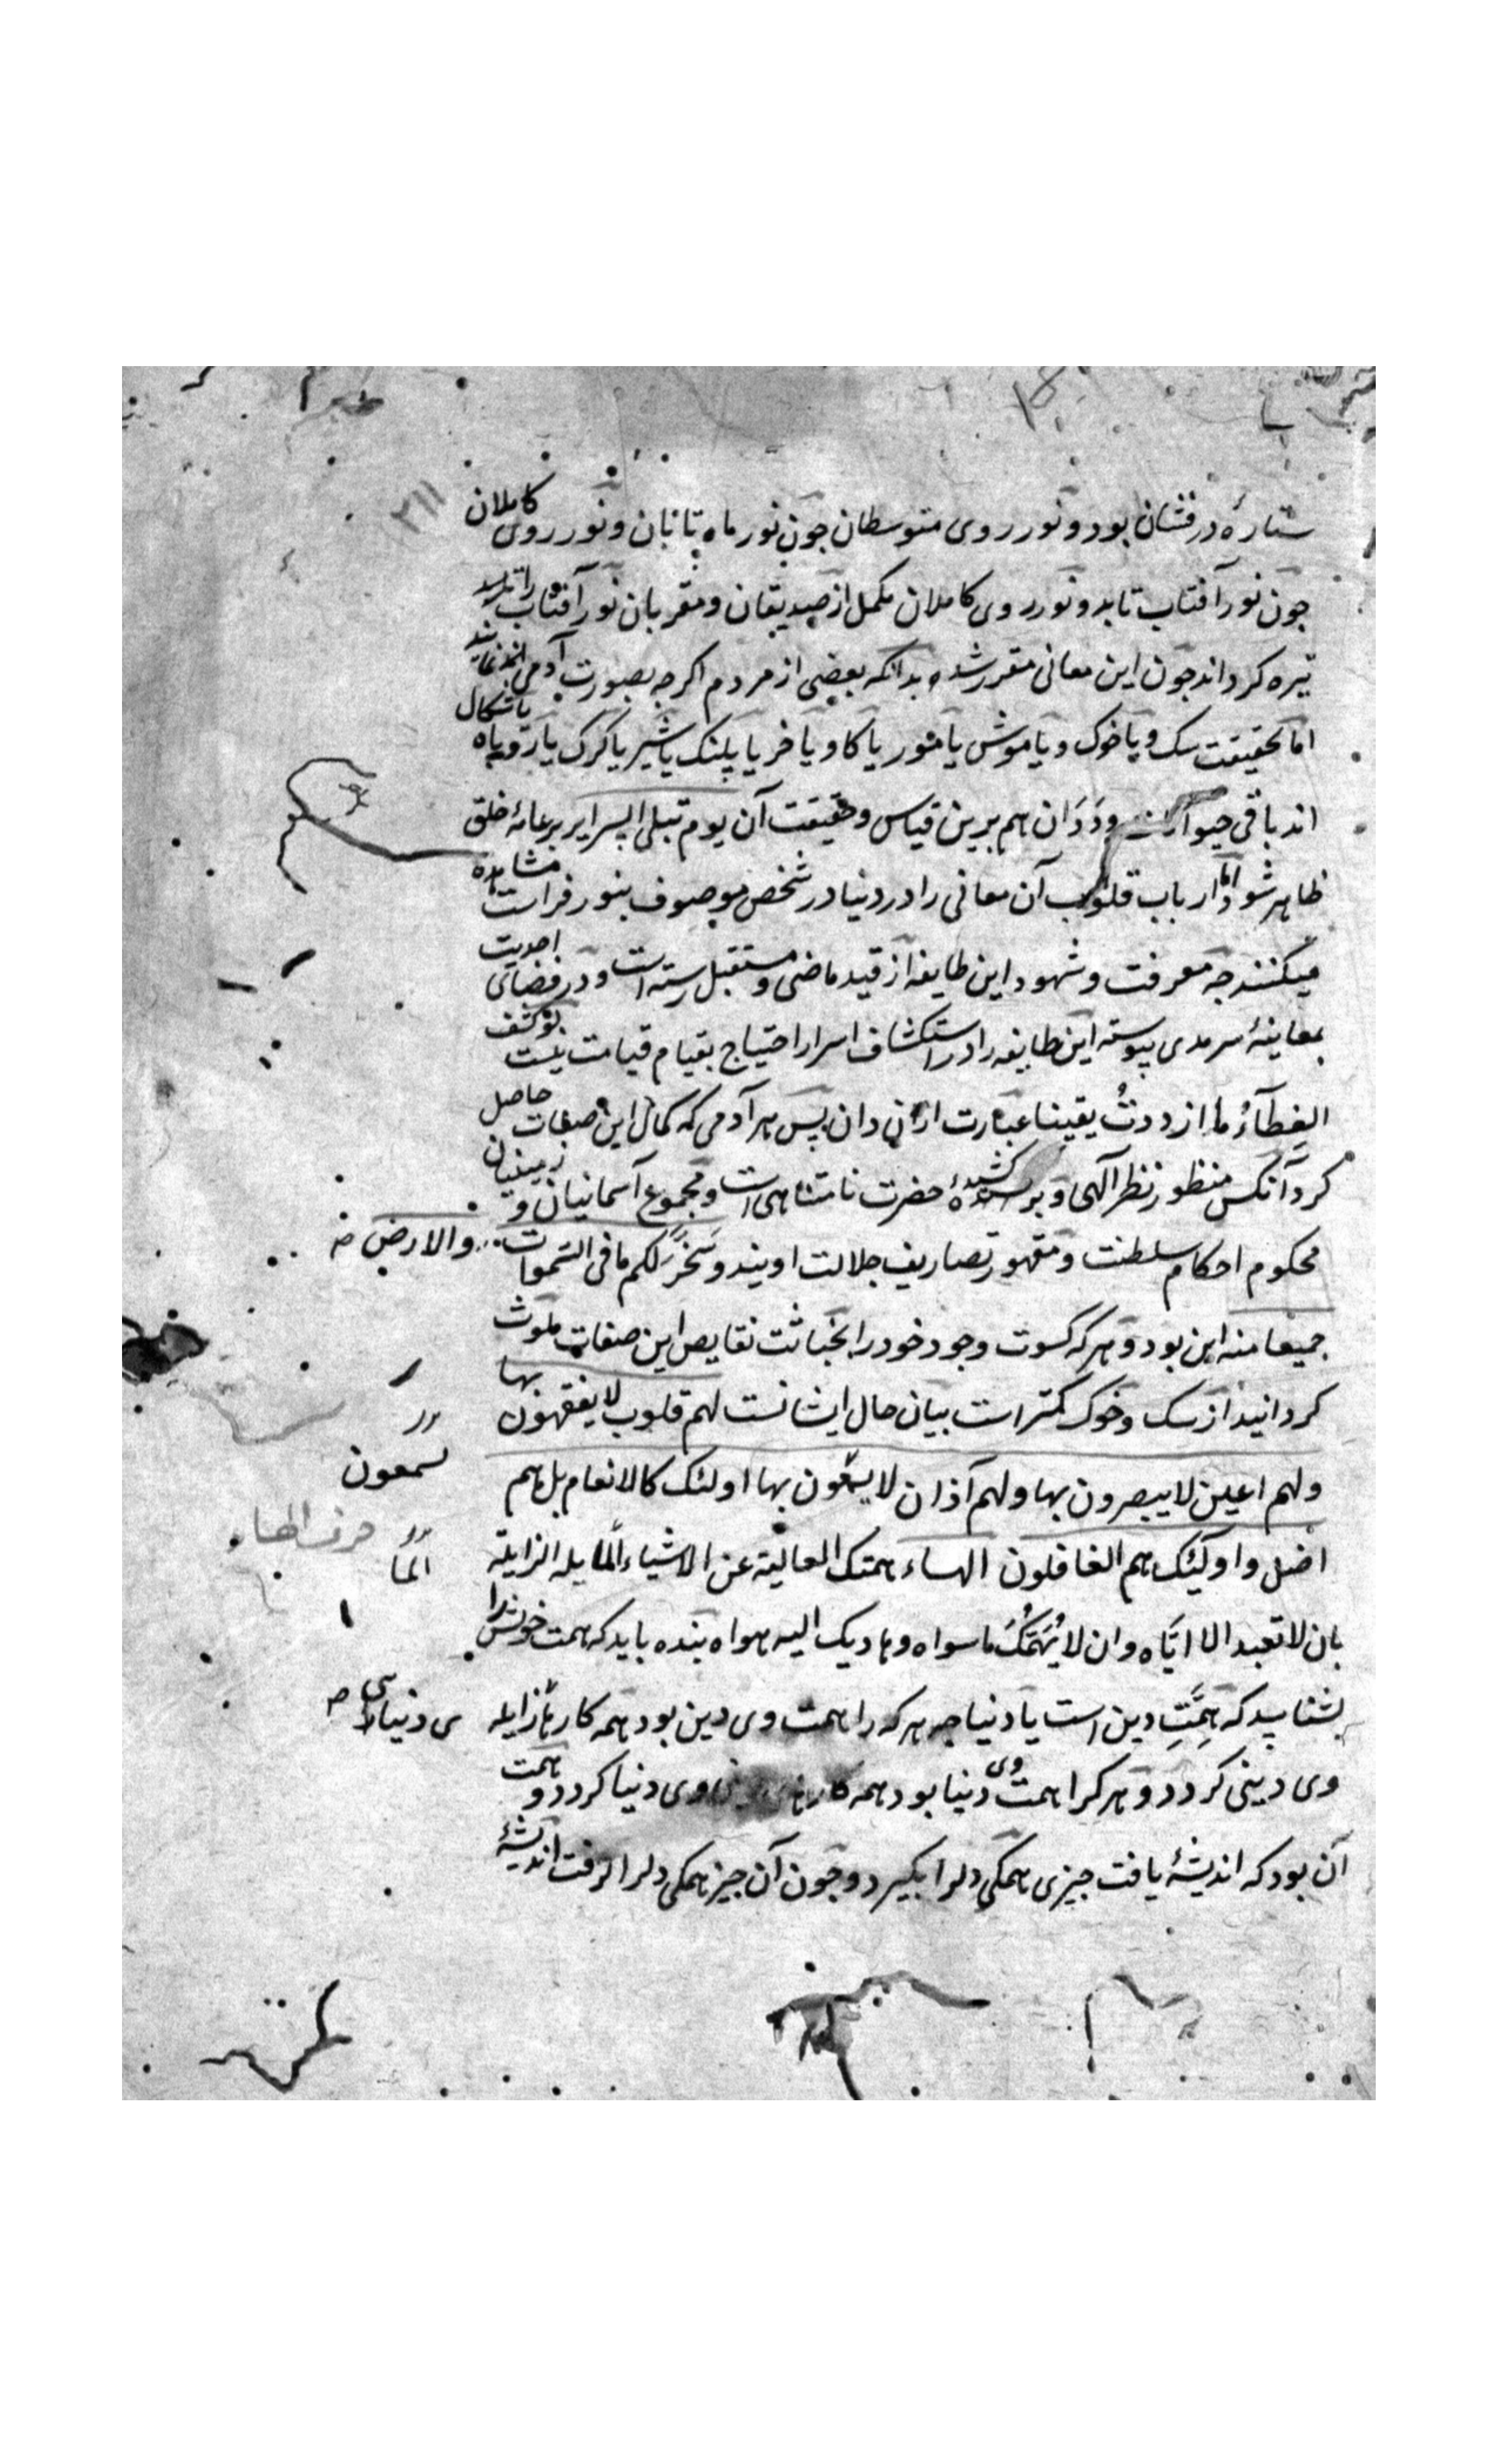 ۳۱۱
ستارهٔ درفشان بود و نور روی متوسطان جون نور ماه تابان و نور روی کاملان
جون نور آفتاب تابد و نور روی کاملان مکمل از صدیقان و مقربان نور آفتاب را
تیره کرداند جون این معانی مقرر شد بدانکه بعضی از مردم اکرجه بصورت آدمی اند
اما بحقیقت سک و یا خوک و یا موش یا مور یا کاو یا خر یا پلنک یا شیر یا کرک یا روباه باشکال
اند باقی حیوانات و ددان هم برین قیاس و حقیقت آن یوم تبلی السرایر بر عامهٔ خلق
ظاهر شود اما ارباب قلوب آن معانی را در دنیا در شخص موصوف بنور فراست مشاهده
میکنند جه معرفت و شهود این طایفه از قید ماضی و مستقبل رسته است و در فضای احدیت
بمعاینهٔ سرمدی پیوسته این طایفه را در استکشاف اسرار احتیاج بقیام قیامت نیست لو کشف
الغطآءُ ما ازددتُ یقینا عبارت ازان دان پس هر آدمی که کمال این صفات حاصل
کرد آنکس منظور نظر آلهی و برکشیدهٔ حضرت نامتناهی است و مجموع آسمانیان و زمینیان
محکوم احکام سلطنت و مقهور تصاریف جلالت اویند و سَخَّرَ لکم ما فی السموات
والارض
جمیعا منه این بود و هرکه کسوت وجود خود را بخباثت نقایص این صفات ملوث
کردانید از سک و خوک کمتر است بیان حال ایشانست لهم قلوب لا یفقهون بها
ولهم اعین لا یبصرون بها ولهم آذان لا یسمعون بها اولئک کالانعام بل هم
یسمعون
اضل و اولئک هم الغافلون الهاء همتک العالیة عن الاشیاء المایله الزایلة
حرف الهاء
الما
بان لا تعبد الا ایّاه وان لا یُهَمَّکَ ما سواه و هادیک الیه هواه بنده باید که همت خویش را
بشناسد که هِمَّتِ دین است یا دنیا جه هرکه را همت وی دین بود همه کارهای
ی دنیا
وی دینی کردد و هرکرا همت وی دنیا بود همه کارهای وی دنیا کردد و همت
آن بود که اندیشهٔ یافت جیزی همکی دلرا بکیرد و جون آن جیز همکی دلرا کرفت اندیشهٔ